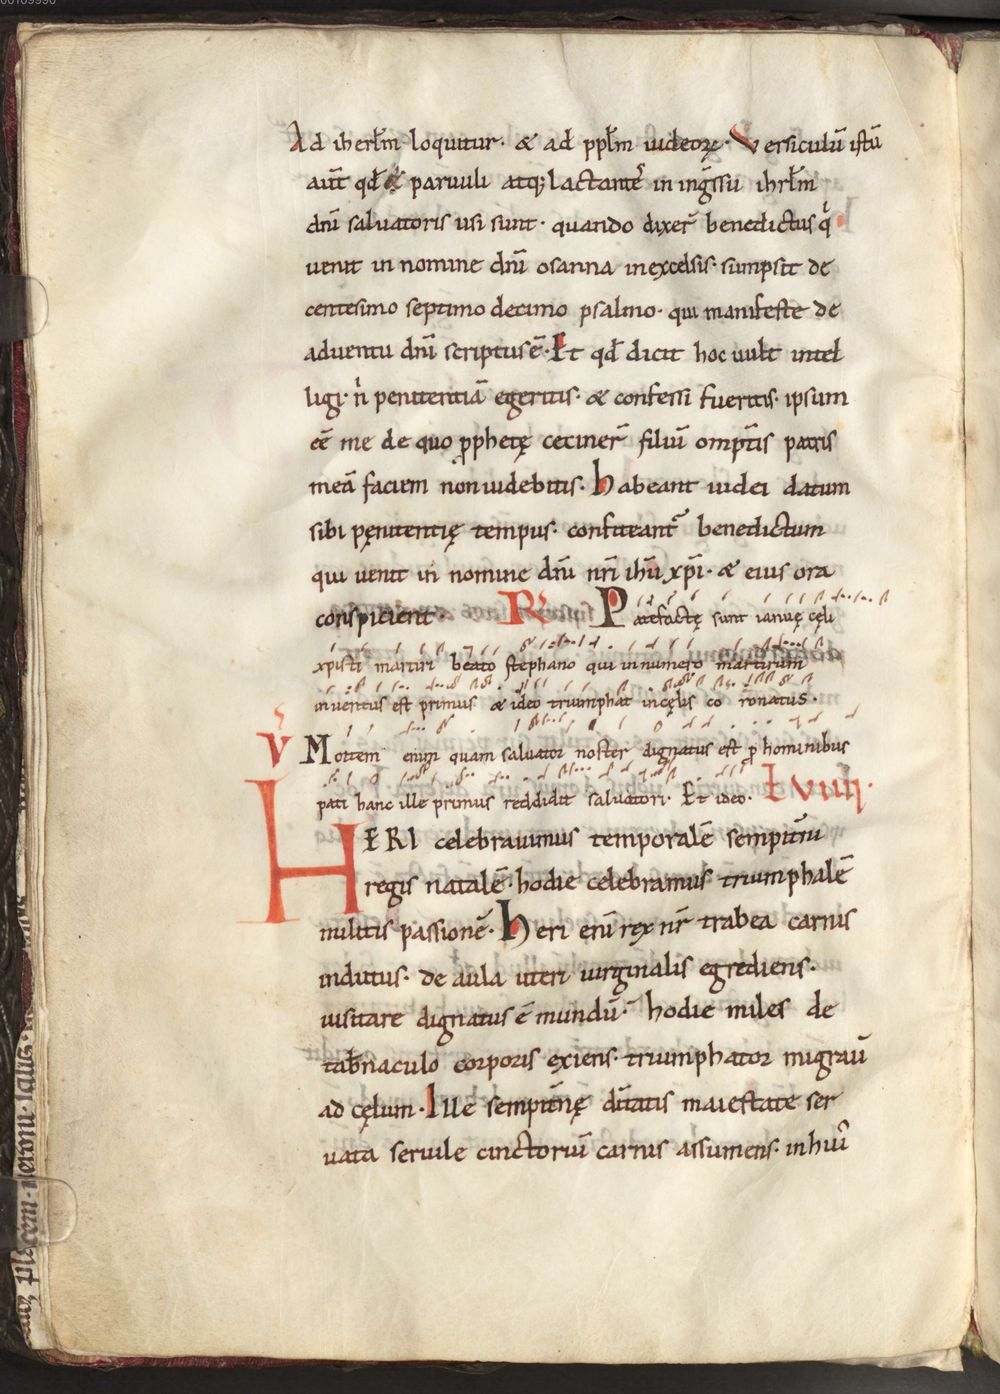 Ad iherłm loquitur· & ad ppłm iudeoꝝ· Versiculū istū
aut̄ qđ & paruuli atq; lactantes in ingressu ihrłm
dn̄i saluatoris usi sunt· quando dixer̄ benedictus q
uenit in nomine dn̄i osanna in excelsis· sumpsit de
centesimo septimo decimo psalmo· qui manifeste de
aduentu dn̄i scriptus ē· Et qđ dicit hoc uult intel
ligi· n penitentiā egeritis· & confessi fueritis· ipsum
eē me de quo ꝓphetę ceciner̄ filiū omp̄tis patris
meā faciem non uidebitis· habeant iudei datum
sibi pęnitentię tempus· confiteant̄ benedictum
qui uenit in nomine dn̄i nr̄i ihū xp̄i· & eius ora
conspicient· R Patefactę sunt ianuę cęli
xpisti martiri beato stephano qui in numero martirum
inuentus est primus & ideo triumphat in cęlis co ronatus·
V Mortem enim quam saluator noster dignatus est ꝓ hominibus
pati hanc ille primus reddidit saluatori· Et ideo·
HERI celebrauimus temporalē sempit̄ni
regis natalē· hodie celebramus triumphalē
militis passionē· heri enī rex nr̄ trabea carnis
indutus· de aula uteri uirginalis egrediens·
uisitare dignatus ē mundū· hodie miles de
tab̄naculo corporis exiens· triumphator migrau
ad cęlum· Ille sempit̄nę d̄itatis maiestate ser
uata seruile cinctoriū carnis assumens· in hui